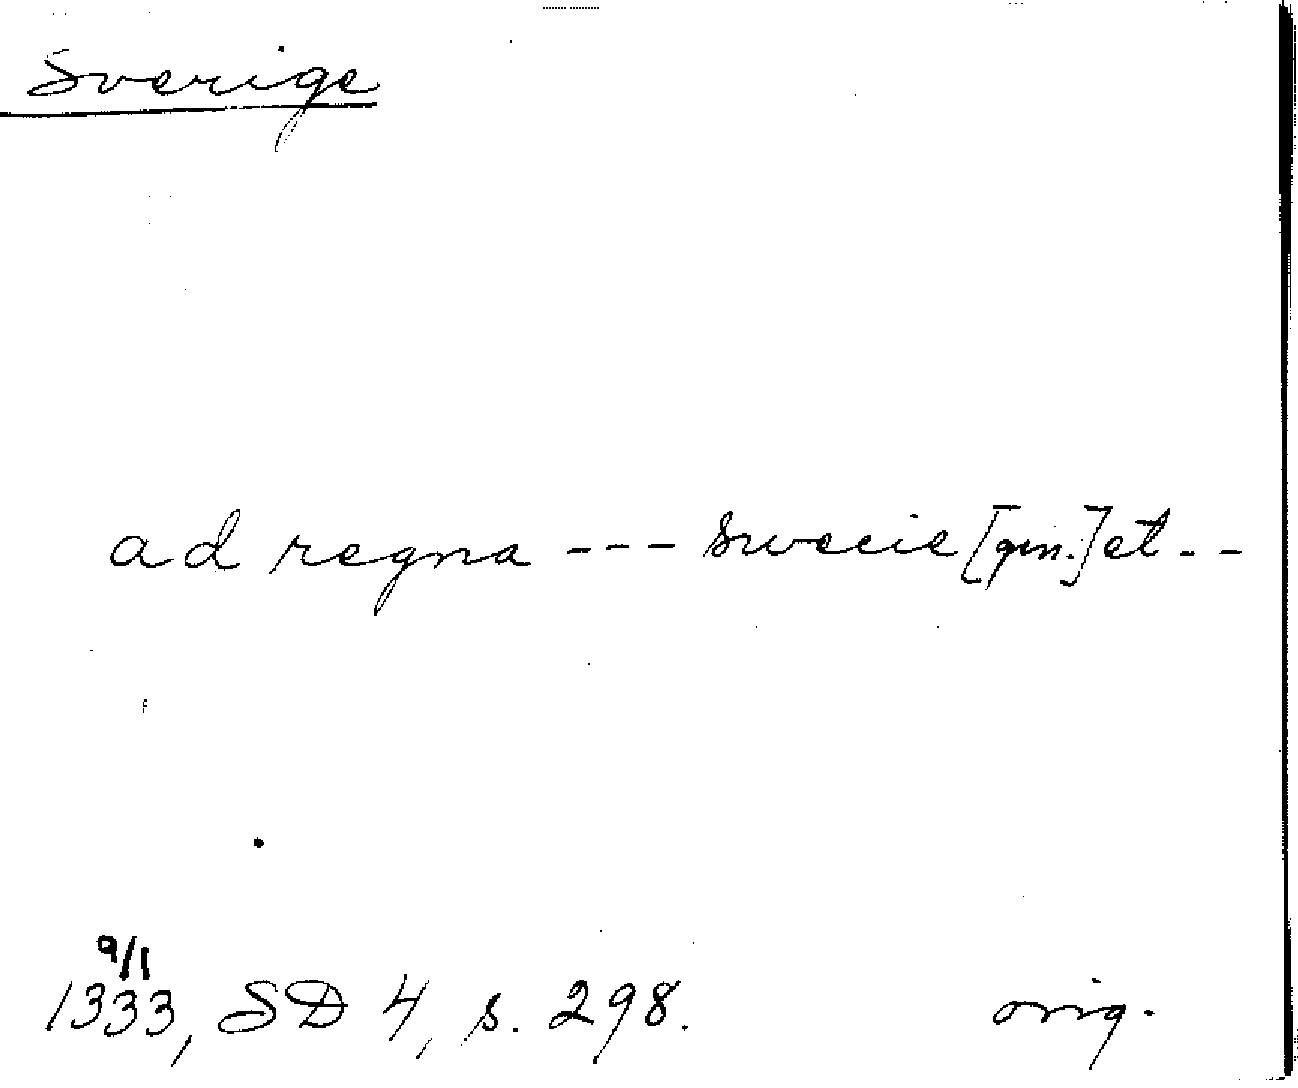 Sverige
ad regna --- swecie [gen.] et --
9/1
1333, SD 4, s. 298. orig.